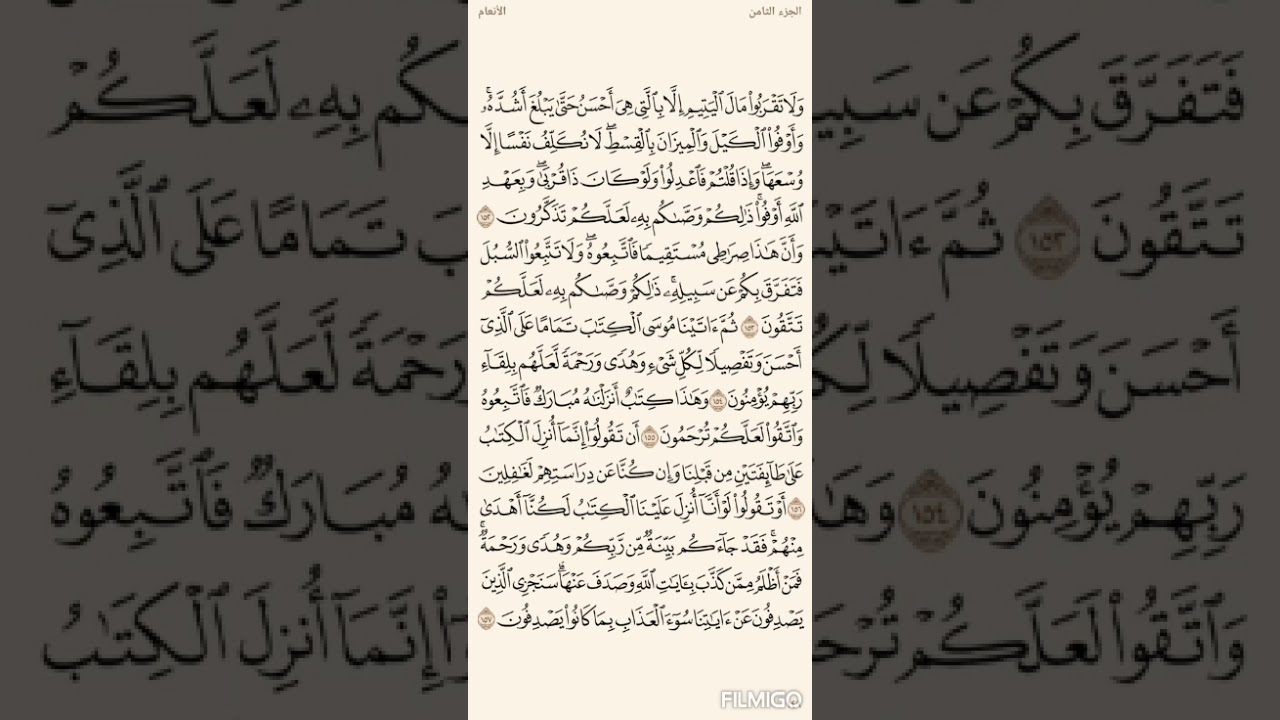 الجزء الثامن
الأنعام
وَلَا تَقْرَبُوا۟ مَالَ ٱلْيَتِيمِ إِلَّا بِٱلَّتِى هِىَ أَحْسَنُ حَتَّىٰ يَبْلُغَ أَشُدَّهُۥۚ
وَأَوْفُوا۟ ٱلْكَيْلَ وَٱلْمِيزَانَ بِٱلْقِسْطِۖ لَا نُكَلِّفُ نَفْسًا إِلَّا
وُسْعَهَاۖ وَإِذَا قُلْتُمْ فَٱعْدِلُوا۟ وَلَوْ كَانَ ذَا قُرْبَىٰۖ وَبِعَهْدِ
ٱللَّهِ أَوْفُوا۟ۚ ذَٰلِكُمْ وَصَّىٰكُم بِهِۦ لَعَلَّكُمْ تَذَكَّرُونَ ١٥٢
وَأَنَّ هَٰذَا صِرَٰطِى مُسْتَقِيمًا فَٱتَّبِعُوهُۖ وَلَا تَتَّبِعُوا۟ ٱلسُّبُلَ
فَتَفَرَّقَ بِكُمْ عَن سَبِيلِهِۦۚ ذَٰلِكُمْ وَصَّىٰكُم بِهِۦ لَعَلَّكُمْ
تَتَّقُونَ ١٥٣ ثُمَّ ءَاتَيْنَا مُوسَى ٱلْكِتَٰبَ تَمَامًا عَلَى ٱلَّذِىٓ
أَحْسَنَ وَتَفْصِيلًا لِّكُلِّ شَىْءٍ وَهُدًى وَرَحْمَةً لَّعَلَّهُم بِلِقَآءِ
رَبِّهِمْ يُؤْمِنُونَ ١٥٤ وَهَٰذَا كِتَٰبٌ أَنزَلْنَٰهُ مُبَارَكٌ فَٱتَّبِعُوهُ
وَٱتَّقُوا۟ لَعَلَّكُمْ تُرْحَمُونَ ١٥٥ أَن تَقُولُوٓا۟ إِنَّمَآ أُنزِلَ ٱلْكِتَٰبُ
عَلَىٰ طَآئِفَتَيْنِ مِن قَبْلِنَا وَإِن كُنَّا عَن دِرَاسَتِهِمْ لَغَٰفِلِينَ
١٥٦ أَوْ تَقُولُوا۟ لَوْ أَنَّآ أُنزِلَ عَلَيْنَا ٱلْكِتَٰبُ لَكُنَّآ أَهْدَىٰ
مِنْهُمْۚ فَقَدْ جَآءَكُم بَيِّنَةٌ مِّن رَّبِّكُمْ وَهُدًى وَرَحْمَةٌۚ
فَمَنْ أَظْلَمُ مِمَّن كَذَّبَ بِـَٔايَٰتِ ٱللَّهِ وَصَدَفَ عَنْهَاۗ سَنَجْزِى ٱلَّذِينَ
يَصْدِفُونَ عَنْ ءَايَٰتِنَا سُوٓءَ ٱلْعَذَابِ بِمَا كَانُوا۟ يَصْدِفُونَ ١٥٧
FILMIGO